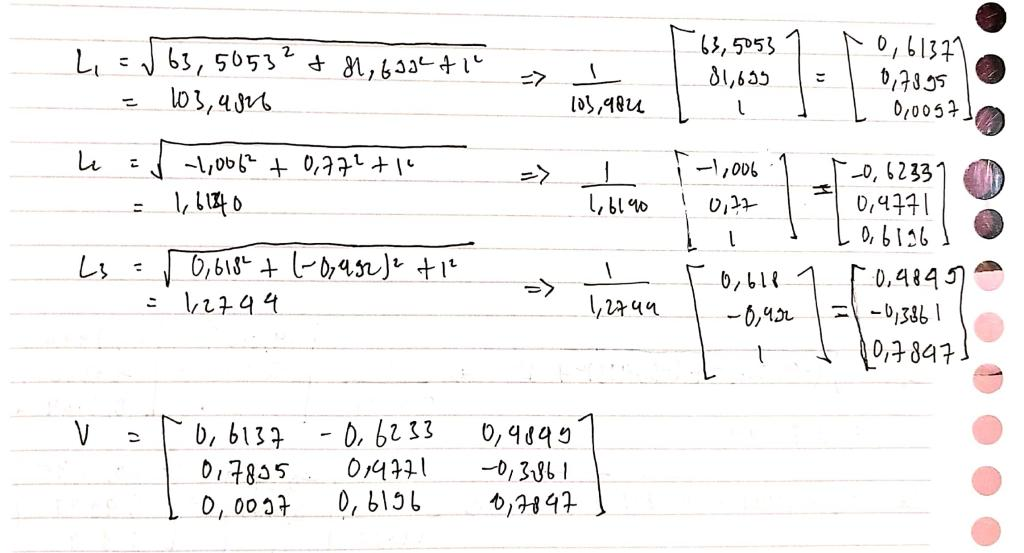 L₁ = √63,5053² + 81,699² + 1² => 1/103,4826 [63,5053 81,699 1] = [0,6137 0,7895 0,0097]
= 103,4826
L₂ = √-1,006² + 0,77² + 1² => 1/1,6140 [-1,006 0,77 1] = [-0,6233 0,4771 0,6196]
= 1,6140
L3 = √0,618² + (-0,492)² + 1² => 1/1,2744 [0,618 -0,492 1] = [0,4849 -0,3861 0,7847]
= 1,2744
V = [0,6137 -0,6233 0,4849
0,7895 0,4771 -0,3861
0,0097 0,6196 0,7847]